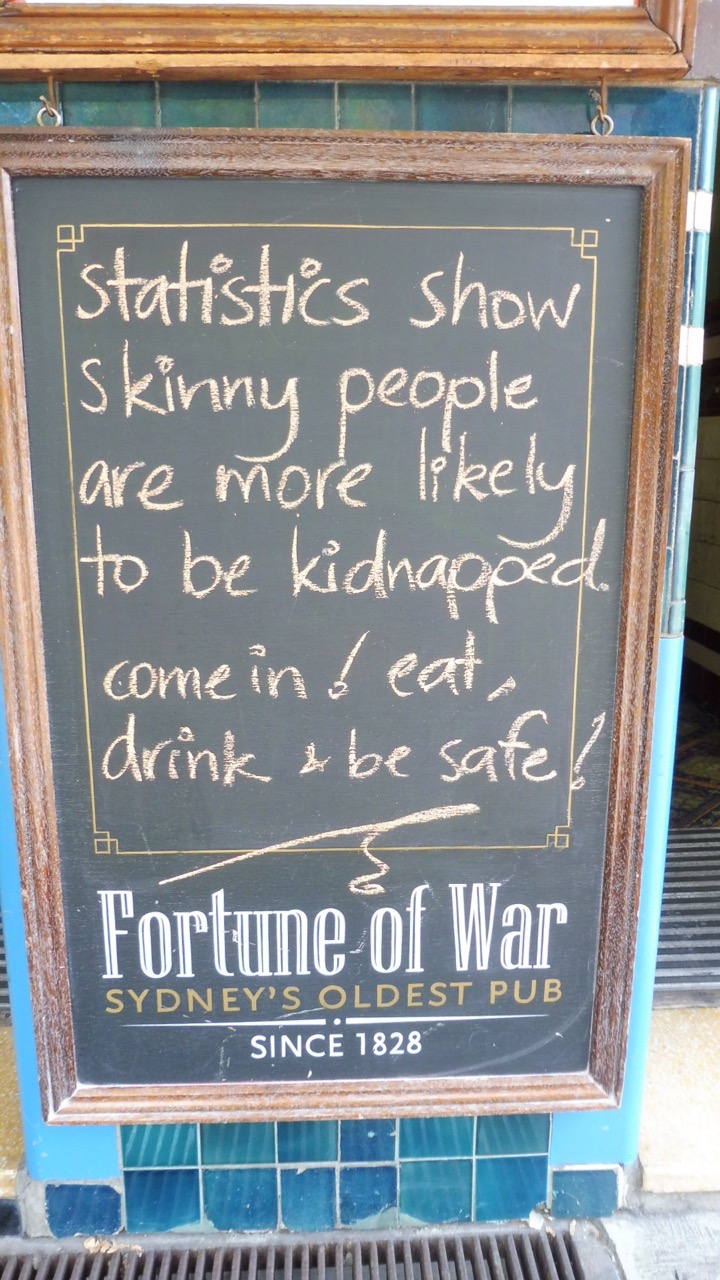 statistics show
skinny people
are more likely
to be kidnapped.
come in! eat,
drink & be safe!
Fortune of War
SYDNEY'S OLDEST PUB
SINCE 1828